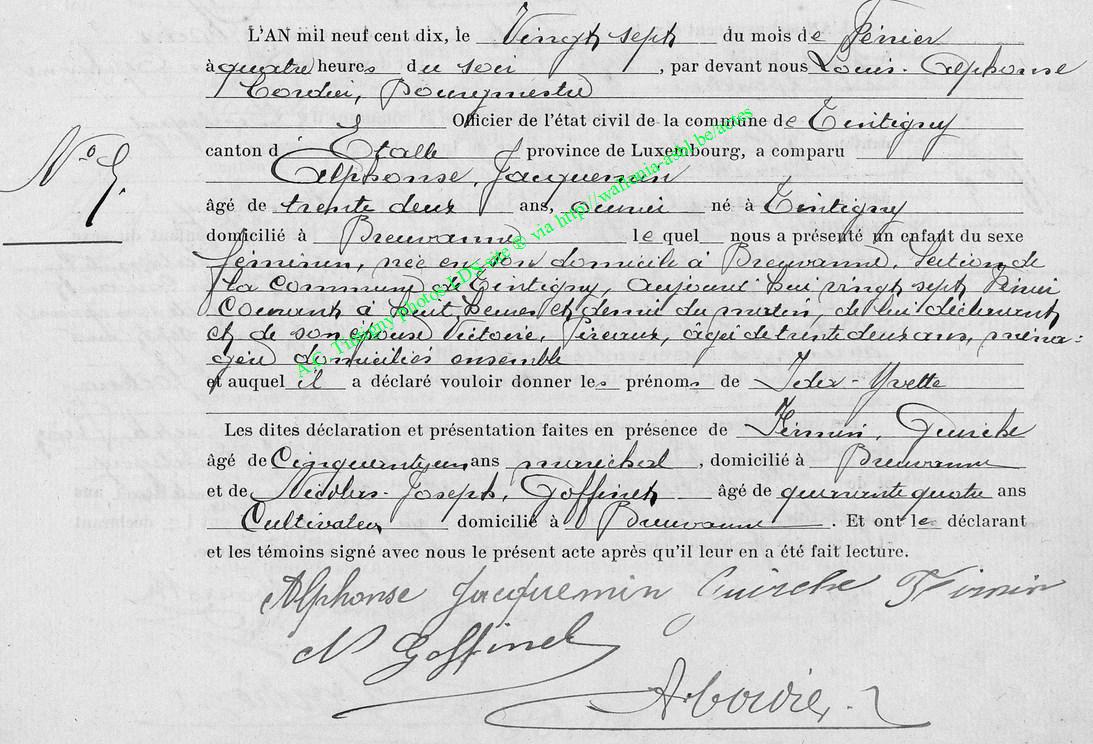 L'AN mil neuf cent dix, le Vingt sept du mois de Février
à quatre heures du soir, par devant nous Louis-Alphonse
Cordier, Bourgmestre
Officier de l'état civil de la commune de Tintigny
canton d'Etalle province de Luxembourg, a comparu
Alphonse, Jacquemin
N° 5.
âgé de trente deux ans, ouvrier né à Tintigny
domicilié à Breuvanne lequel nous a présenté un enfant du sexe
féminin, née en son domicile à Breuvanne, section de
la commune de Tintigny, aujourd'hui vingt sept Février
courant à huit heures et demie du matin, de lui déclarant
et de son épouse Victoire, âgée de trente deux ans, ména-
gère domiciliés ensemble
et auquel il a déclaré vouloir donner les prénoms de -Yvette
Les dites déclaration et présentation faites en présence de Firmin, Cuirche
âgé de ans maréchal, domicilié à Breuvanne
et de Nicolas-Joseph, Goffinet âgé de quarante quatre ans
Cultivateur domicilié à Breuvanne. Et ont le déclarant
et les témoins signé avec nous le présent acte après qu'il leur en a été fait lecture.
Alphonse Jacquemin Cuirche Firmin
N Goffinet
A. Cordier
A.C. Tintigny photos LDS site ® via http://wallonia-asbl.be/actes